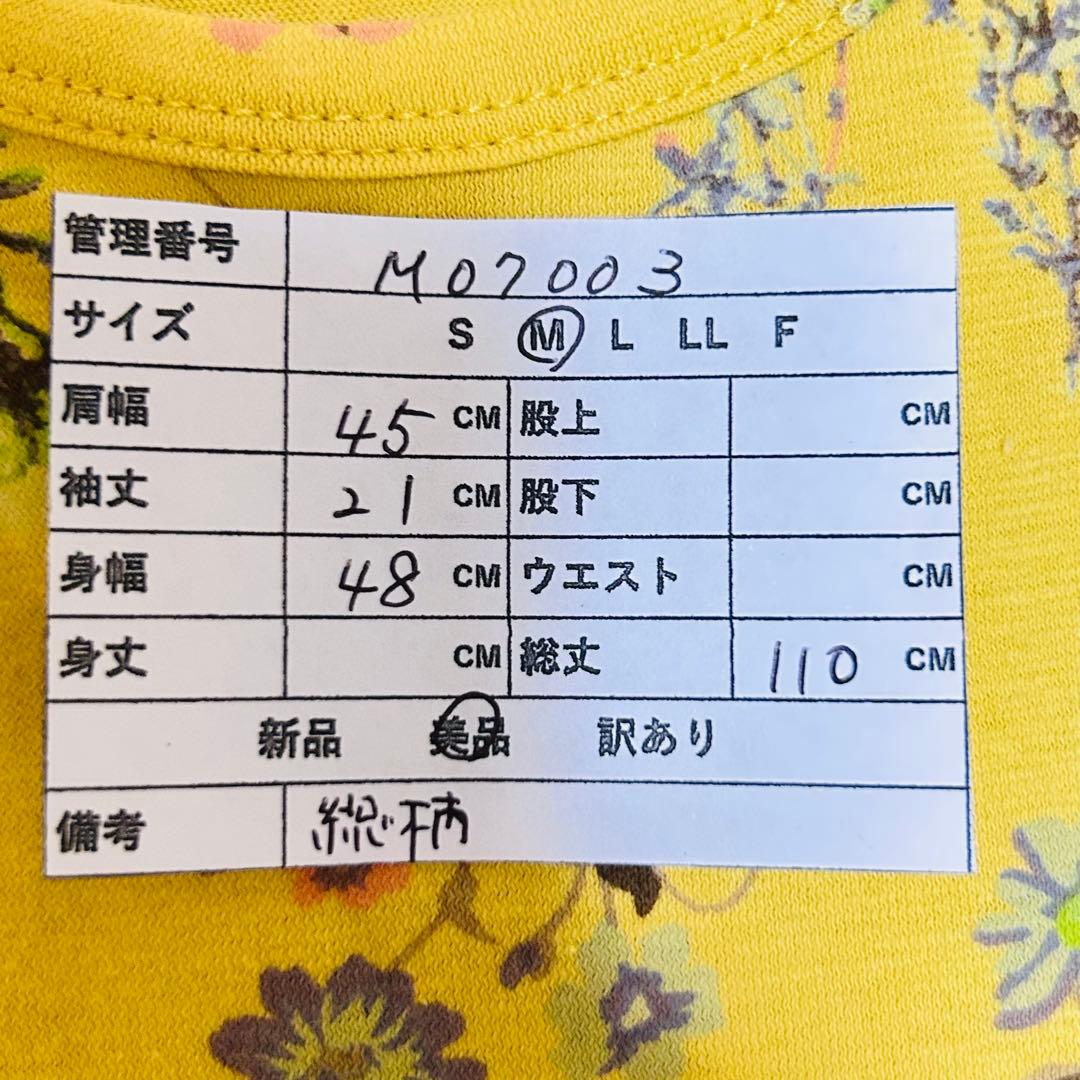 管理番号 M07003
サイズ S M L LL F
肩幅 45 CM 股上 CM
袖丈 21 CM 股下 CM
身幅 48 CM ウエスト CM
身丈 CM 総丈 110 CM
新品 美品 訳あり
備考 総柄